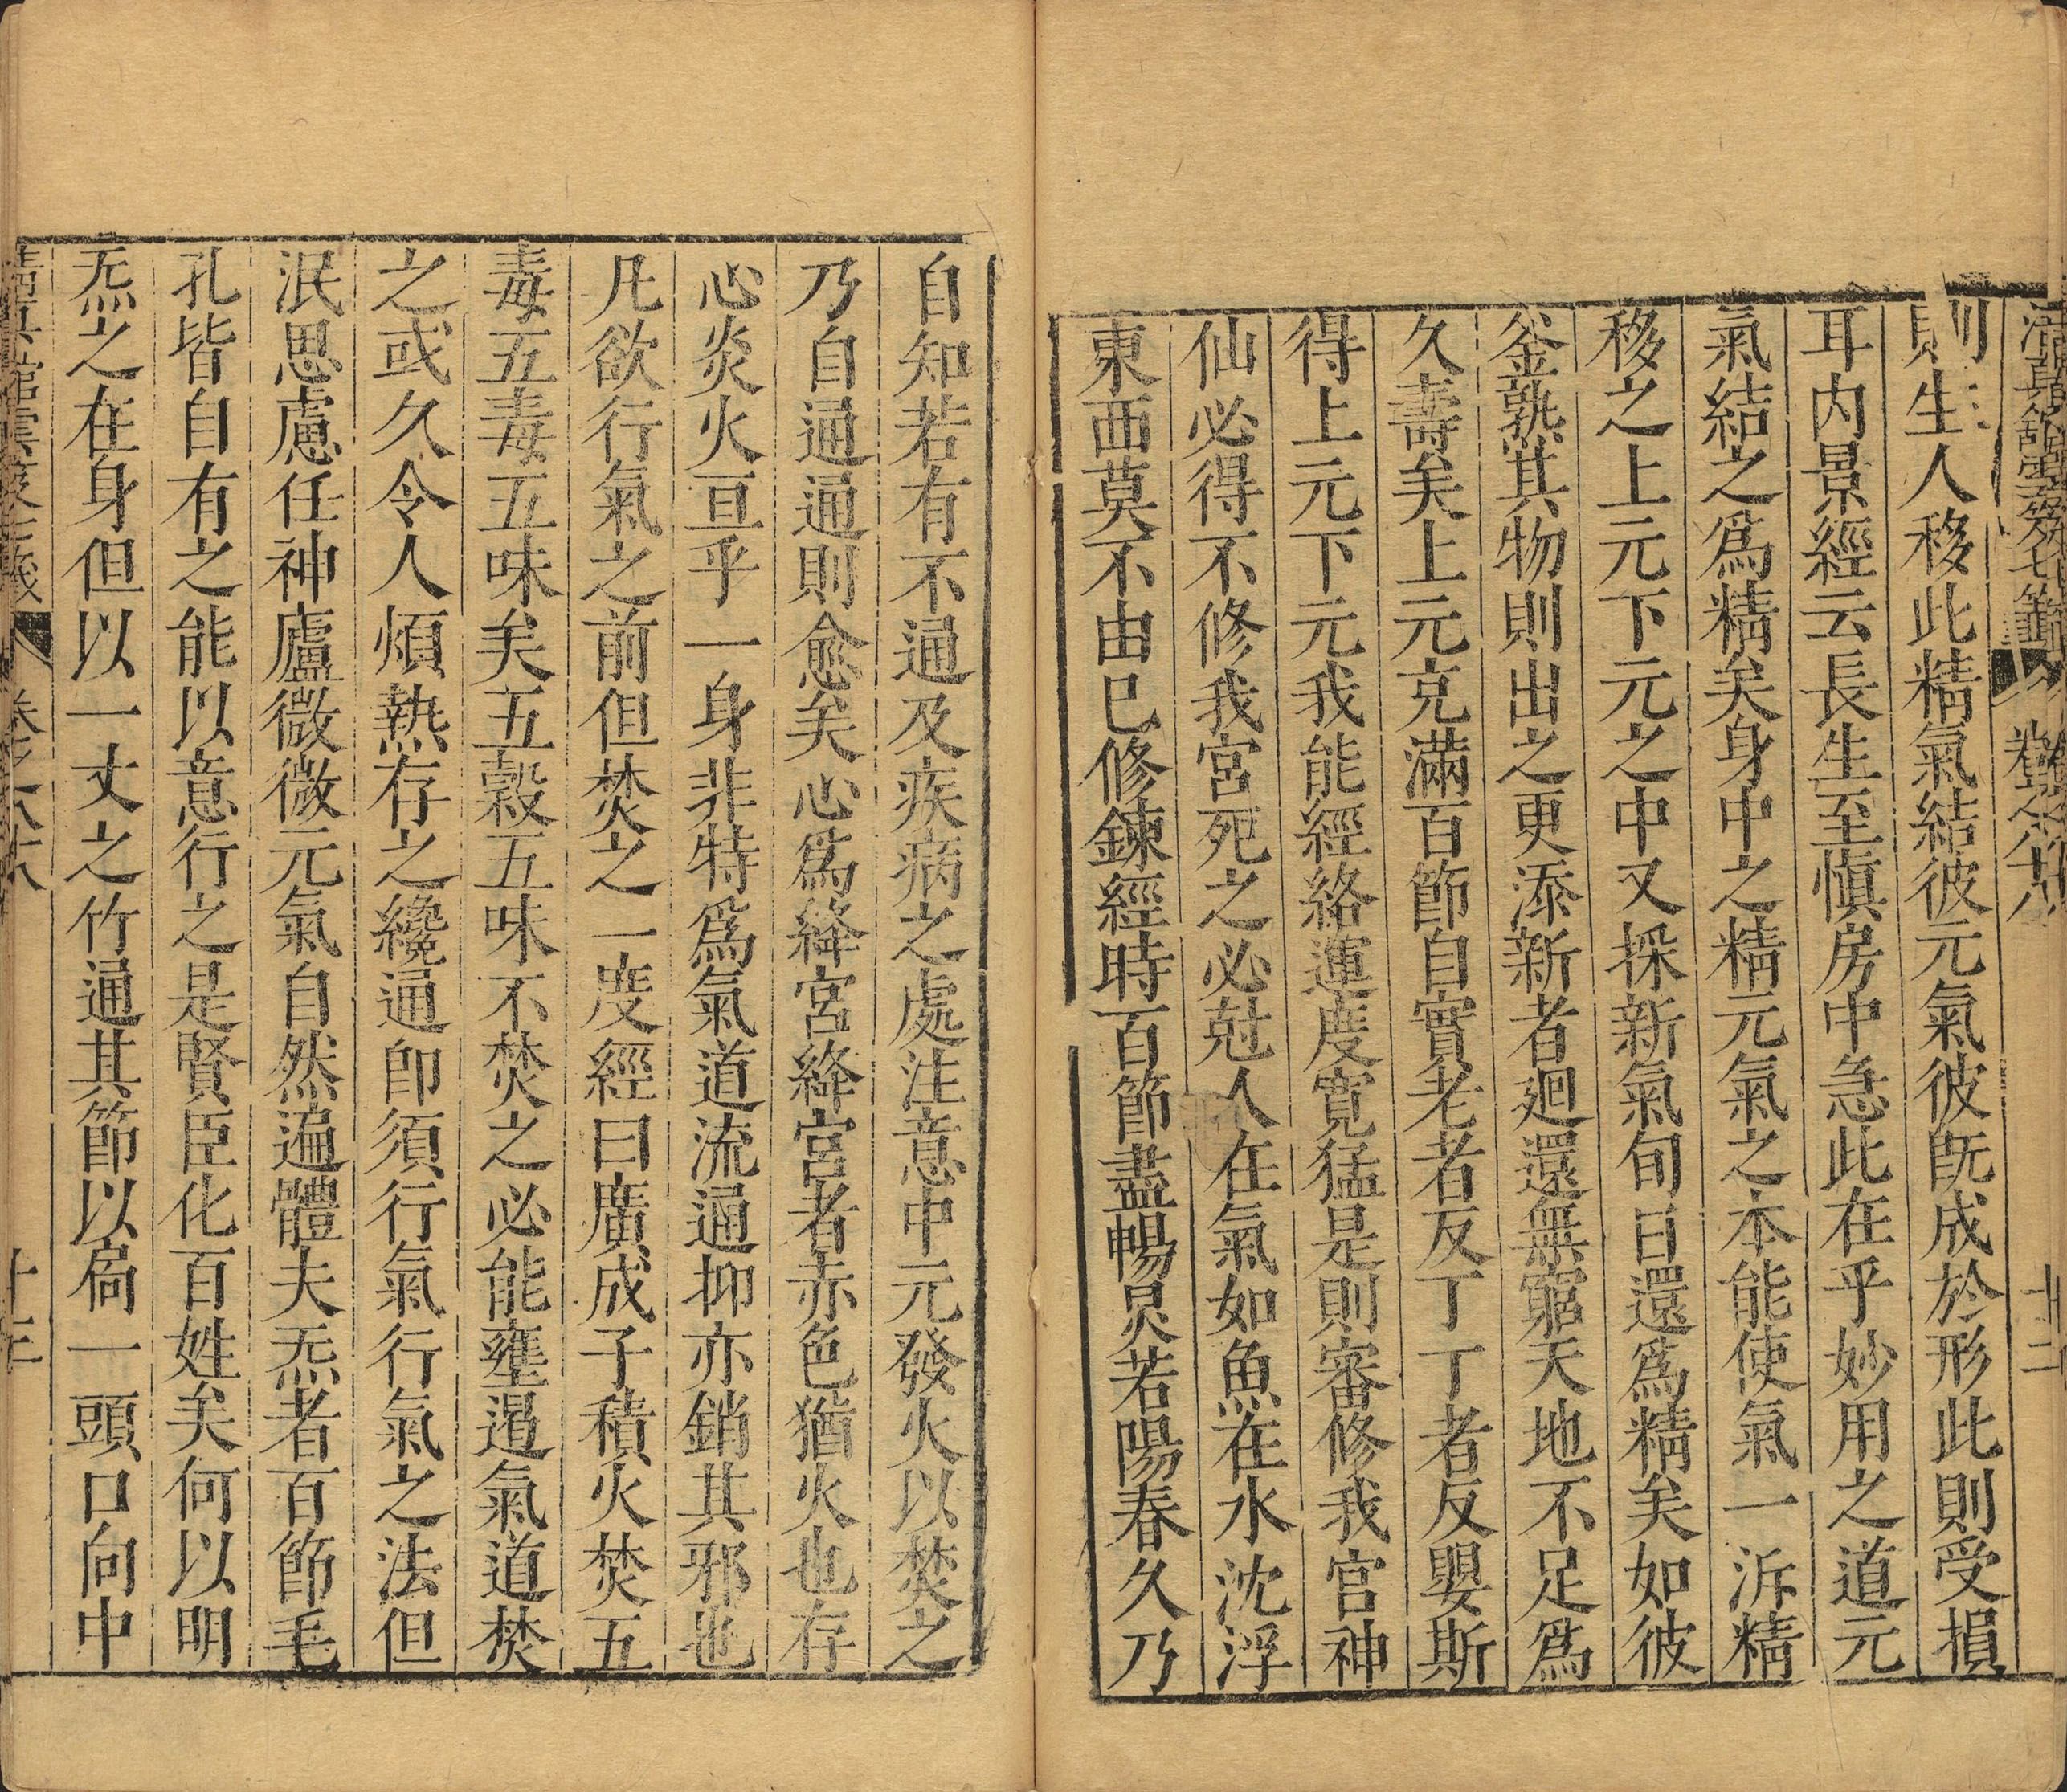 清眞館雲笈七籤
卷之六十八
十二
則生人移此精氣結彼元氣彼旣成於形此則受損
耳内景經云長生至愼房中急此在乎妙用之道元
氣結之爲精矣身中之精元氣之本能使氣一泝精
移之上元下元之中又採新氣旬日還爲精矣如彼
釜熟其物則出之更添新者廻還無窮天地不足爲
久壽矣上元充滿百節自實老者反丁丁者反嬰斯
得上元下元我能經絡運度寛猛是則審修我官神
仙必得不修我宮死之必尅人在氣如魚在水沈浮
東西莫不由巳修鍊經時百節盡暢炅若陽春久乃
自知若有不通及疾病之處注意中元發火以焚之
乃自通通則愈矣心爲絳宮絳宮者赤色猶火也存
心炎火亘乎一身非特爲氣道流通抑亦銷其邪也
凡欲行氣之前但焚之一度經曰廣成子積火焚五
毒五毒五味矣五穀五味不焚之必能壅遏氣道焚
之或久令人煩熱存之纔通卽須行氣行氣之法但
泯思慮任神廬微微元氣自然遍體夫炁者百節毛
孔皆自有之能以意行之是賢臣化百姓矣何以明
炁之在身但以一丈之竹通其節以扄一頭口向中
清眞館雲笈七籤
卷之六十八
十三